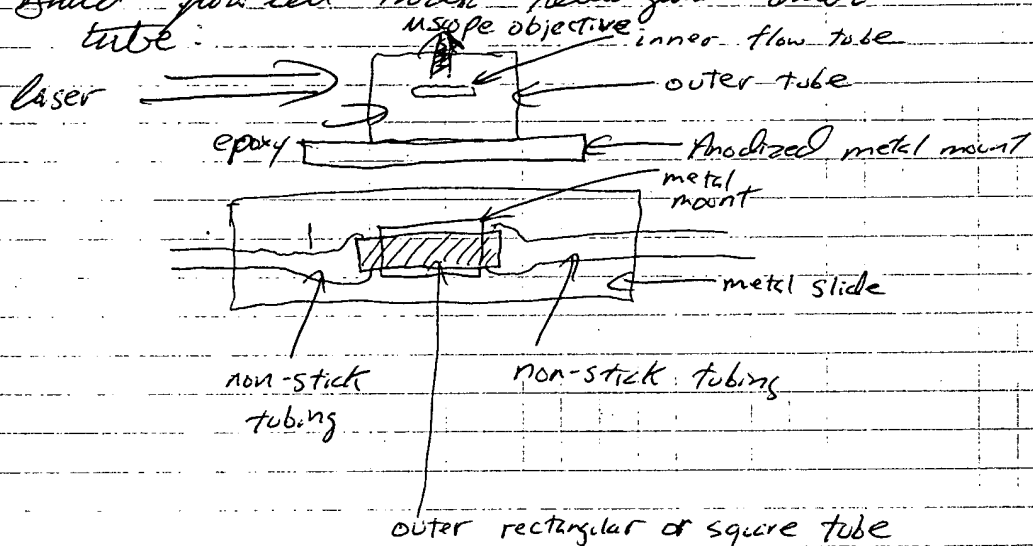 flow cell
tube:
μscope objective
inner flow tube
laser
outer tube
epoxy
Anodized metal mount
metal
mount
metal slide
non-stick
tubing
non-stick tubing
outer rectangular or square tube